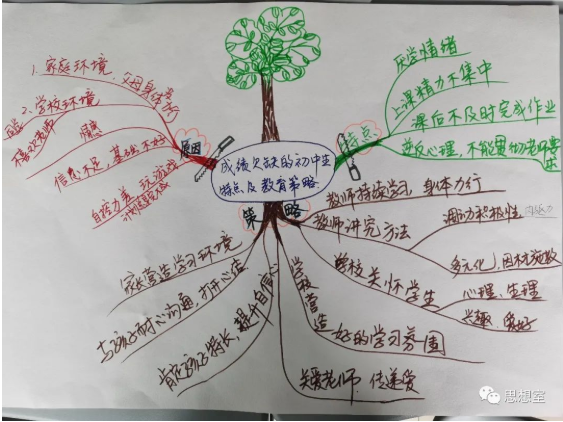 成绩欠缺的初中生
特点及教育策略
原因
1. 家庭环境、父母身体素
2、学校环境
不喜欢老师
信息不足,基础不好
自控力差 玩游戏
特点
厌学情绪
上课精力不集中
课后不及时完成作业
逆反心理,不能贯彻老师要求
策略
教师持续学习,身体力行
教师讲究方法
调动积极性
内驱力
多元化,因材施教
学校关怀学生
心理、生理
兴趣、爱好
学校营造好的学习氛围
关爱老师 传递爱
家长营造学习环境
与孩子耐心沟通 打开心结
肯定孩子特长,提升自信
思想室